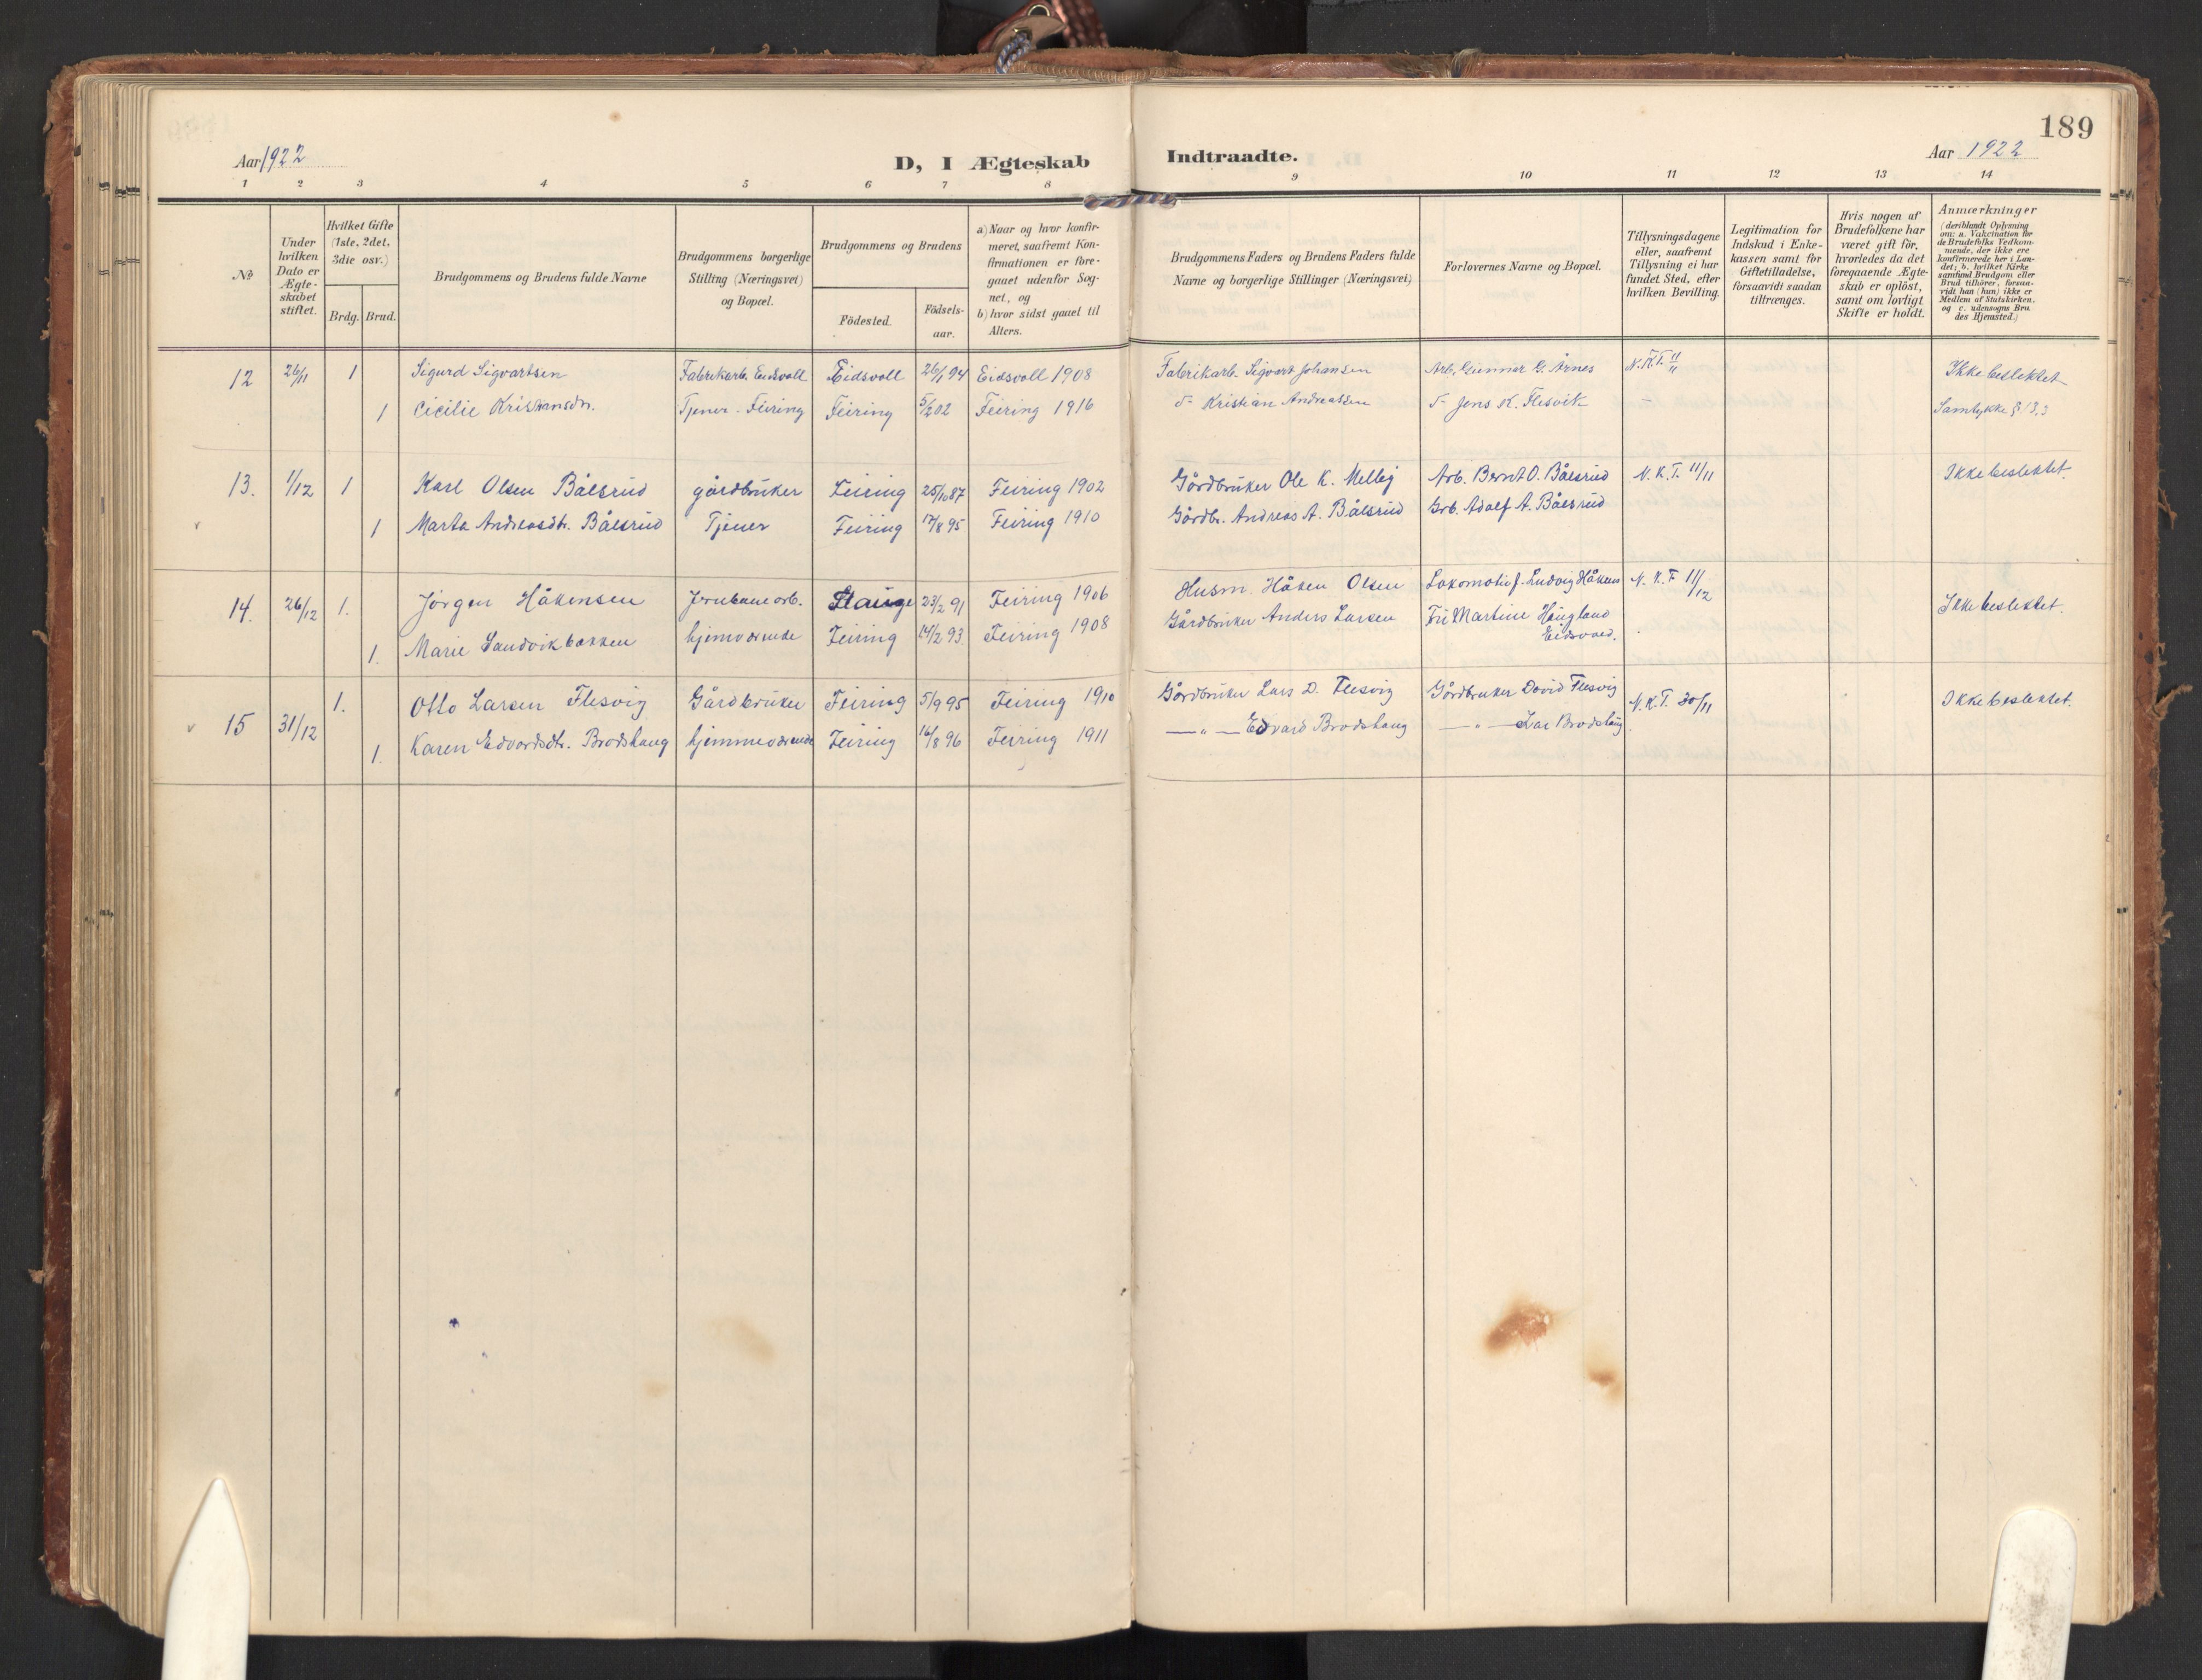 189
Aar 1922
D, I Ægteskab Indtraadte.
Aar 1922
1 2 3 4 5 6 7 8 9 10 11 12 13 14
No
Under hvilken Dato er Ægteskabet stiftet.
Hvilket Gifte (1ste, 2det, 3die osv.)
Brdg. Brud.
Brudgommens og Brudens fulde Navne
Brudgommens borgerlige Stilling (Næringsvei) og Bopæl.
Brudgommens og Brudens
Födested.
Födselsaar.
a) Naar og hvor konfirmeret, saafremt Konfirmationen er foregaaet udenfor Sognet, og
b) hvor sidst gaaet til Alters.
Brudgommens Faders og Brudens Faders fulde Navne og borgerlige Stillinger (Næringsvei)
Forlovernes Navne og Bopæl.
Tillysningsdagene eller, saafremt Tillysning ei har fundet Sted, efter hvilken Bevilling.
Legitimation for Indskud i Enkekassen samt for Giftetilladelse, forsaavidt saadan tiltrænges.
Hvis nogen af Brudefolkene har været gift för, hvorledes da det foregaaende Ægteskab er oplöst, samt om lovligt Skifte er holdt.
Anmærkninger (deriblandt Oplysning om: a. Vakcination for de Brudefolks Vedkommende, der ikke ere konfirmerede her i Landet; b. hvilket Kirkesamfund Brudgom eller Brud tilhörer, forsaavidt han (hun) ikke er Medlem af Statskirken, og c. udensogns Brudes Hjemsted.)
12 26/11 1 Sigurd Sigvartsen Fabrikarb. Eidsvoll Eidsvoll 26/1 94 Eidsvoll 1908 Fabrikarb. Sigvart Johansen Arb. Gunnar G. Årnes N.K.T. 11/11 Ikke beslektet
1 Cicilie Kristiansdtr. Tjener - Feiring Feiring 5/2 02 Feiring 1916 Kristian Andreassen Jens K. Flesvik – Samtykke § 13,3
13. 1/12 1 Karl Olsen Bålsrud gårdbruker Feiring 25/10 87 Feiring 1902 Gårdbruker Ole K. Melby Arb. Bernt O. Bålsrud N.K.T. 11/11 Ikke beslektet.
1 Marta Andreasdtr. Bålsrud Tjener Feiring 17/8 95 Feiring 1910 Gårdbr. Andreas A. Bålsrud Grb. Adolf A. Bålsrud
14. 26/12 1. Jørgen Håkensen Jernbanearb. Stange 23/2 91 Feiring 1906 Husm. Håken Olsen Lokomotivf. Ludvig Håkens N.K.T 11/12 Ikke beslektet.
1. Marie Sandvikbakken hjemværende Feiring 14/2 93 Feiring 1908 Gårdbruker Anders Larsen Fru Martine Haugland
Eidsvoll.
15 31/12 1. Otto Larsen Flesvig Gårdbruker Feiring 5/9 95 Feiring 1910 Gårdbruker Lars D. Flesvig Gårdbruker David Flesvig N.K.T. 30/11 Ikke beslektet.
1. Karen Edvardsdtr. Brodshaug hjemmeværende Feiring 16/8 96 Feiring 1911 —„— Edvard Brodshaug —„— Lar Brodshaug